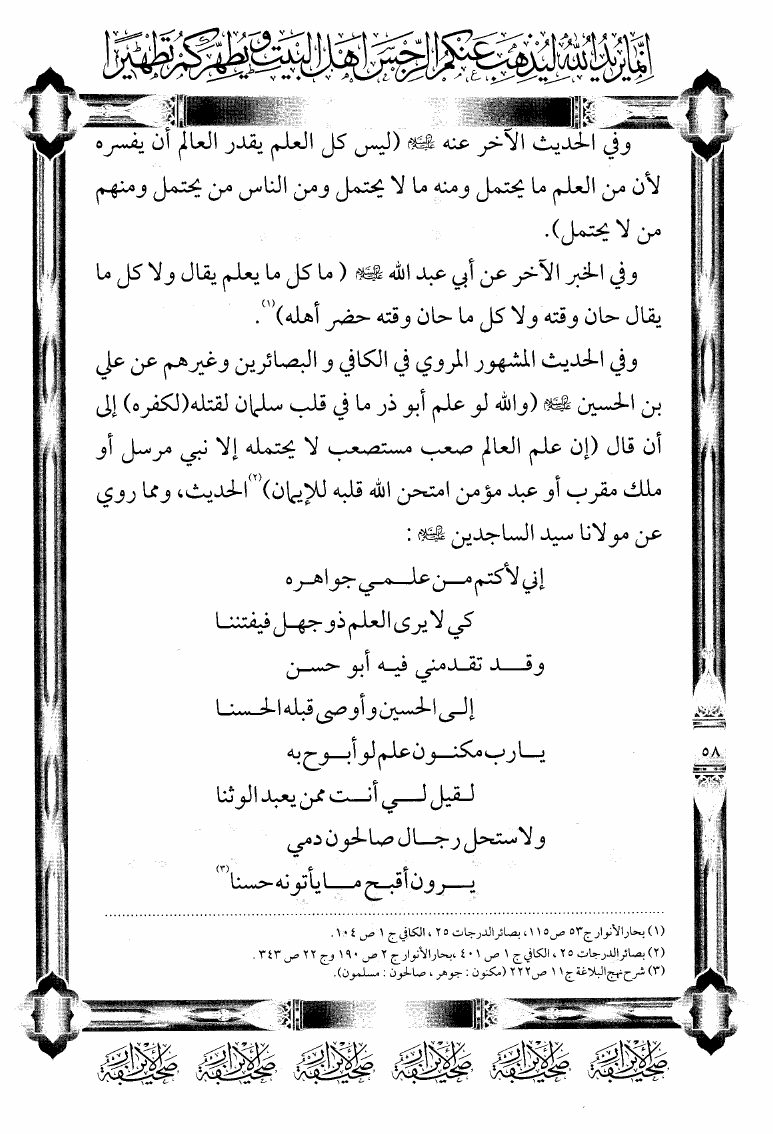 إنما يريد الله ليذهب عنكم الرجس أهل البيت ويطهركم تطهيرا
وفي الحديث الآخر عنه عليه السلام (ليس كل العلم يقدر العالم أن يفسره
لأن من العلم ما يحتمل ومنه ما لا يحتمل ومن الناس من يحتمل ومنهم
من لا يحتمل).
وفي الخبر الآخر عن أبي عبد الله عليه السلام ( ما كل ما يعلم يقال ولا كل ما
يقال حان وقته ولا كل ما حان وقته حضر أهله)(١).
وفي الحديث المشهور المروي في الكافي و البصائرين وغيرهم عن علي
بن الحسين عليه السلام (والله لو علم أبو ذر ما في قلب سلمان لقتله(لكفره) إلى
أن قال (إن علم العالم صعب مستصعب لا يحتمله إلا نبي مرسل أو
ملك مقرب أو عبد مؤمن امتحن الله قلبه للإيمان)(٢)الحديث، ومما روي
عن مولانا سيد الساجدين عليه السلام :
إني لأكتم مـن علـمـي جواهره
كي لا يرى العلم ذو جهـل فيفتننـا
وقـد تقـدمني فيـه أبو حسـن
إلـى الحسين وأوصى قبله الحـسنـا
يـا رب مكنـون علم لو أبـوح به
لـقيل لـي أنـت ممن يعبد الوثنا
ولاستحل رجـال صالحون دمي
يـرون أقبـح مـا يأتونه حسنا(٣)
(١) بحار الأنوار ج٥٣ ص١١٥، بصائر الدرجات ٢٥ ، الكافي ج ١ ص ١٠٤.
(٢) بصائر الدرجات ٢٥ ، الكافي ج ١ ص ٤٠١ ،بحار الأنوار ج ٢ ص ١٩٠ وج ٢٢ ص ٣٤٣ .
(٣) شرح نهج البلاغة ج١١ ص٢٢٢ (مكنون : جوهر ، صالحون : مسلمون).
٥٨